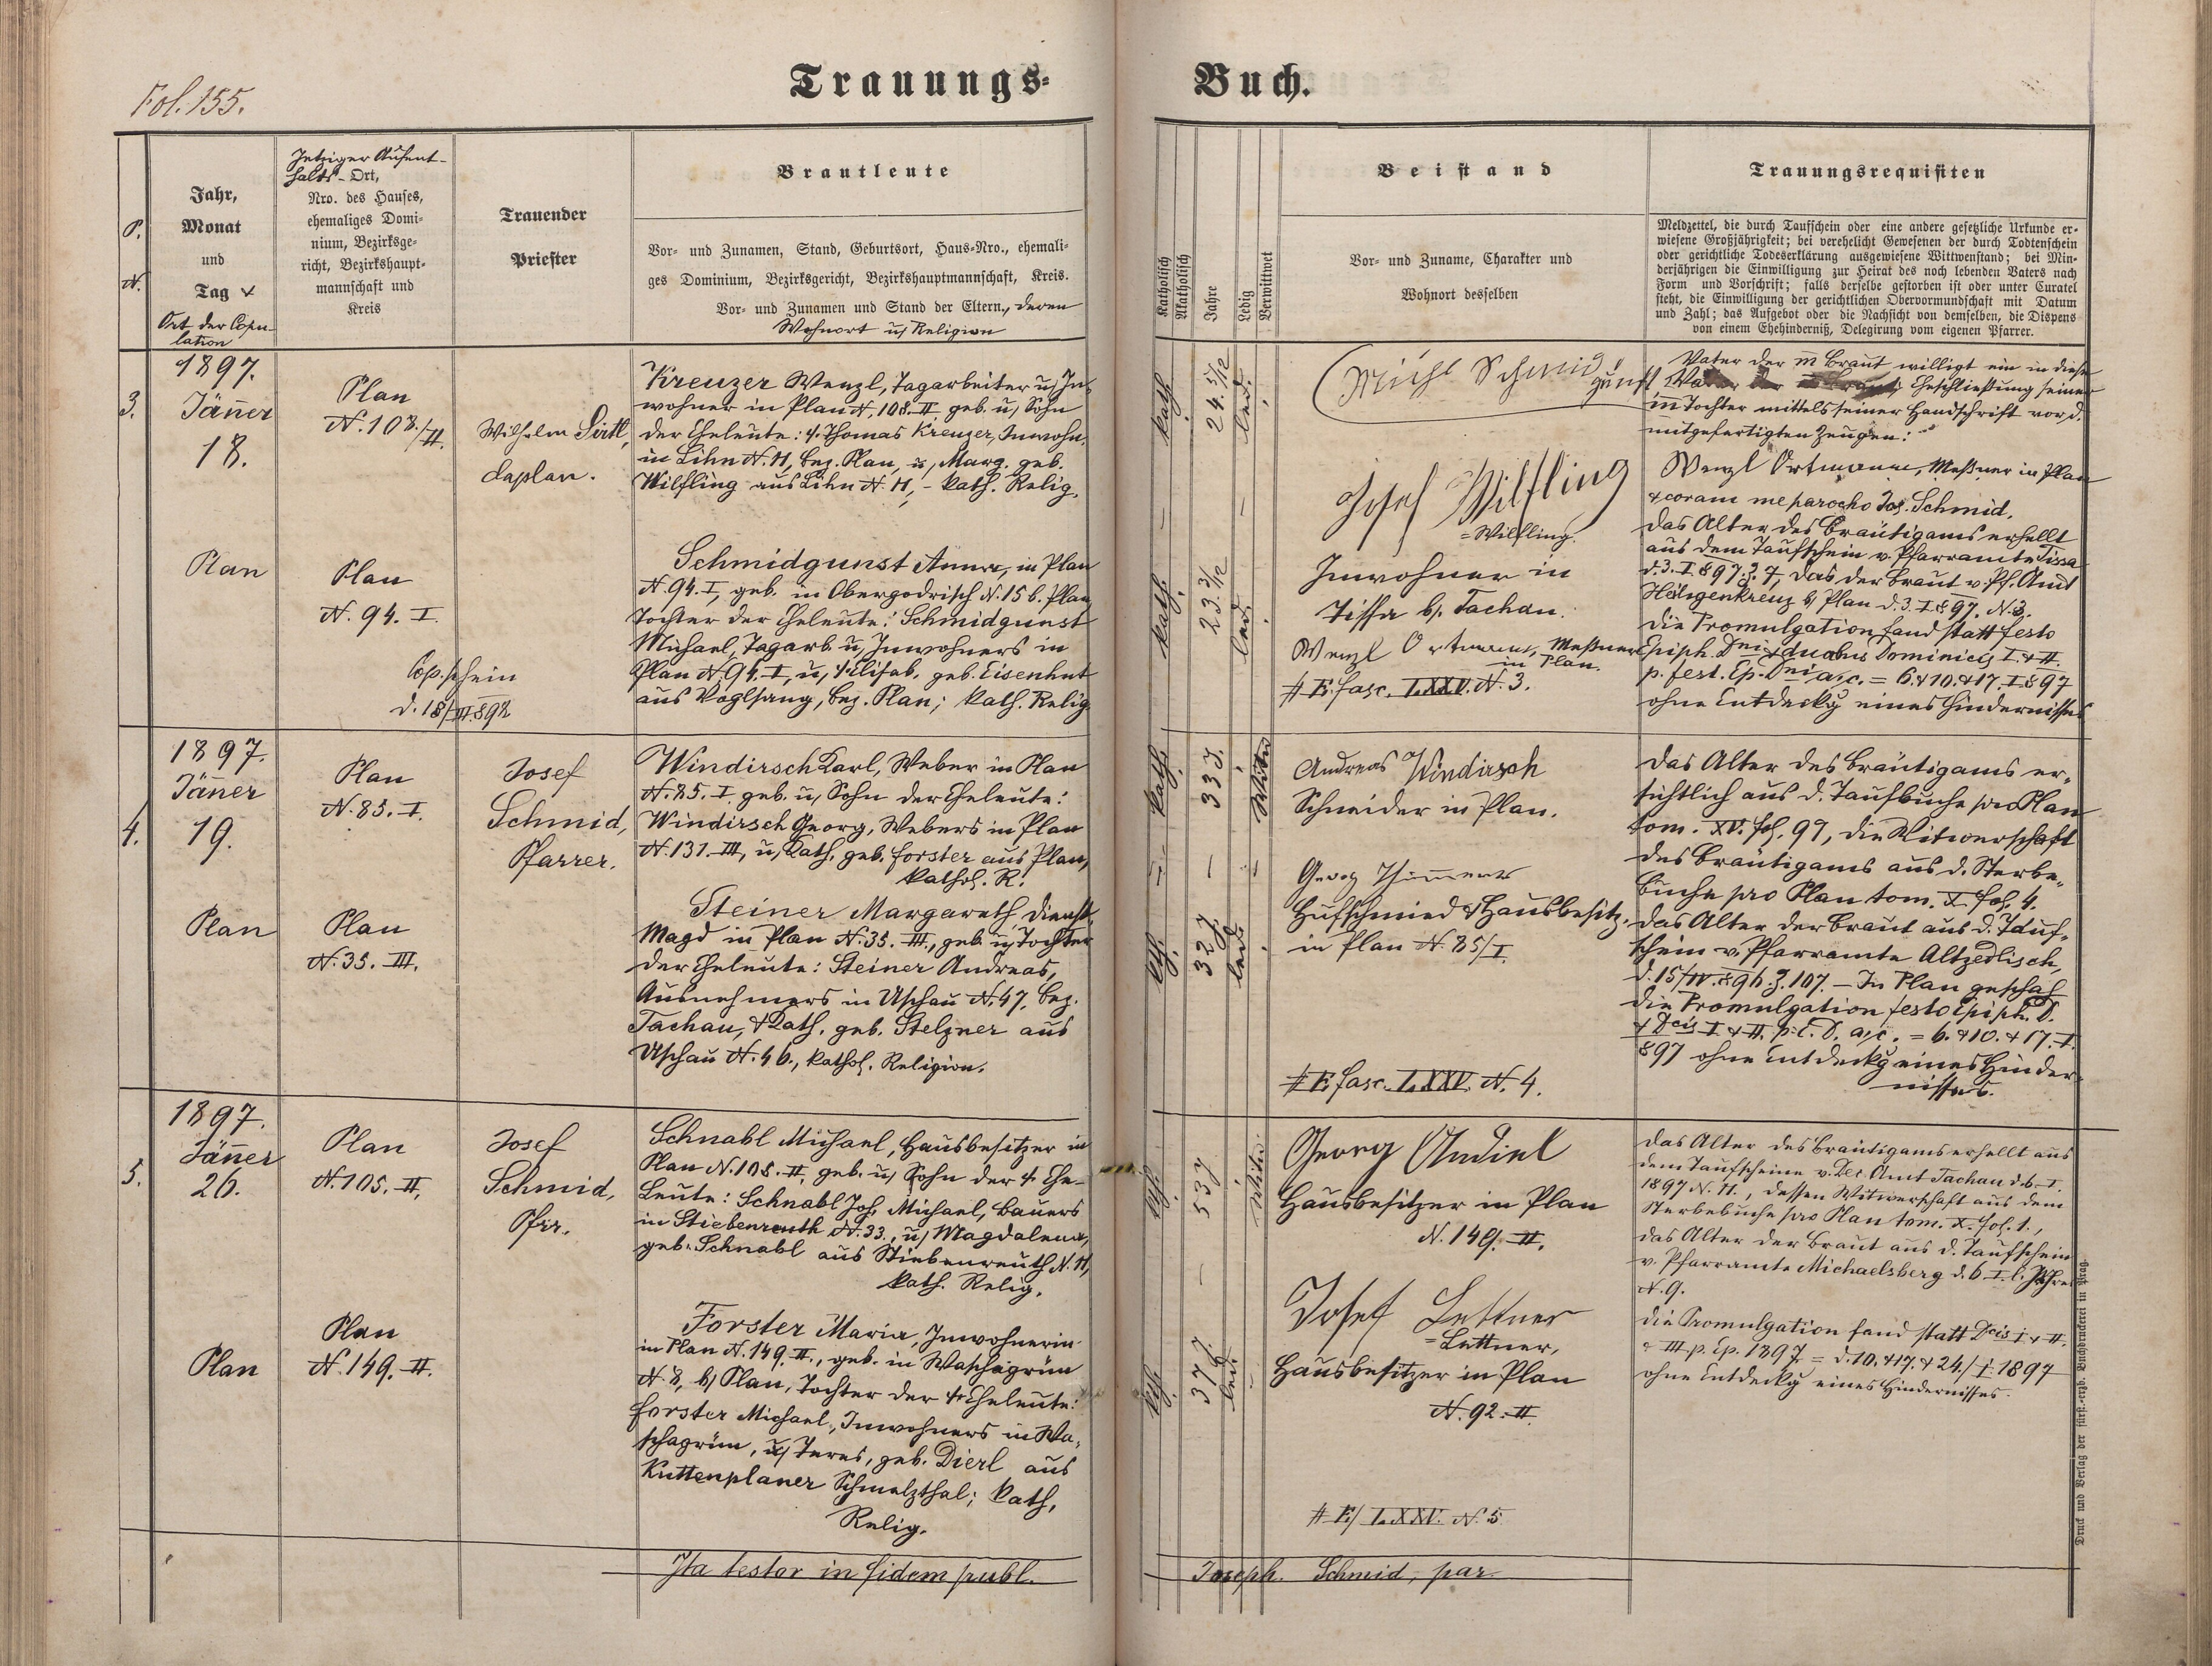 Fol. 155.
Trauungs-
Buch.
P.
N.
Jahr,
Monat
und
Tag &
Ort der Copu-
lation
Jetziger Aufent-
halts-Ort,
Nro. des Hauses,
ehemaliges Domi-
nium, Bezirksge-
richt, Bezirkshaupt-
mannschaft und
Kreis
Trauender
Priester
Brautleute
Vor- und Zunamen, Stand, Geburtsort, Haus-Nro., ehemali-
ges Dominium, Bezirksgericht, Bezirkshauptmannschaft, Kreis.
Vor- und Zunamen und Stand der Eltern, deren
Wohnort u, Religion
Katholisch
Akatholisch
Jahre
Ledig
Verwittwet
Beistand
Vor- und Zuname, Charakter und
Wohnort desselben
Trauungsrequisiten
Meldzettel, die durch Taufschein oder eine andere gesetzliche Urkunde er-
wiesene Großjährigkeit; bei verehelicht Gewesenen der durch Todtenschein
oder gerichtliche Todeserklärung ausgewiesene Wittwenstand; bei Min-
derjährigen die Einwilligung zur Heirat des noch lebenden Vaters nach
Form und Vorschrift; falls derselbe gestorben ist oder unter Curatel
steht, die Einwilligung der gerichtlichen Obervormundschaft mit Datum
und Zahl; das Aufgebot oder die Nachsicht von demselben, die Dispens
von einem Ehehinderniß, Delegirung vom eigenen Pfarrer.
3.
1897.
Jänner
18.
Plan
Plan
N. 108./II.
Plan
N. 94. I.
Cop.schein
Wilhelm Sirtl,
Caplan.
Kreuzer Wenzl, Tagarbeiter u, In-
wohner in Plan N. 108. II, geb. u, Sohn
der Eheleute: †. Thomas Kreuzer, Inwohn.
in Lihn N. 11, bez. Plan, u, Marg. geb.
Wilfling aus Lihn N. 11, - kath. Relig.
Schmidgunst Anna, in Plan
N. 94. I, geb. in Obergodrisch N. 15 b. Plan
Tochter der Eheleute: Schmidgunst
Michael, Tagarb. u, Inwohners in
Plan N. 94. I, u, †. Elisab. geb. Eisenhut
aus Voglsang, bez. Plan; kath. Relig.
kath.
24. 5/12
led.
kath.
23. 3/12
led.
Michl Schmid
gunst
Josef Wilfling
= Wilfling.
Inwohner in
Tissa b/. Tachau.
Wenzl Ortmann, Meßner
in Plan.
# E. fasc. LXXV. N. 3.
Vater der m Braut willigt ein in diese
Eheschließung seiner
m Tochter mittels seiner Handschrift vor d.
mitgefertigten Zeugen:
Wenzl Ortmann, Meßner in Plan
& coram me parocho Jos. Schmid.
Das Alter des Bräutigams erhellt
aus dem Taufschein v. Pfarramte Tissa
d. 3. I 897. Z. 7, das der Braut v. Pf. Amt
Heiligenkreuz b/ Plan d. 3. I 897. N. 3.
Die Promulgation fand statt festo
Epiph. Dni & duabus Dominicis I. & II.
p. fest. Ep. Dni a/c. = 6. & 10. & 17. I 897
ohne Entdeckg eines Hindernisses
4.
1897.
Jänner
19.
Plan
Plan
N. 85. I.
Plan
N. 35. III.
Josef
Schmid,
Pfarrer.
Windirsch Karl, Weber in Plan
N. 85. I, geb. u, Sohn der Eheleute:
Windirsch Georg, Webers in Plan
N. 131. III, u, Kath. geb. Forster aus Plan,
kathol. R.
Steiner Margareth, Dienst-
Magd in Plan N. 35. III., geb. u, Tochter
der Eheleute: Steiner Andreas,
Ausnehmers in Uschau N. 47, bez.
Tachau, & Kath. geb. Stelzner aus
Uschau N. 46., kathol. Religion.
kath.
33 J.
Witw
kth.
32 J.
led.
Andreas Windirsch
Schneider in Plan.
Georg
Hufschmied & Hausbesitz.
in Plan N. 85/I.
# E. fasc. LXXV. N. 4.
Das Alter des Bräutigams er-
sichtlich aus d. Taufbuche pro Plan
tom. XV. fol. 97, die Witwerschaft
des Bräutigams aus d. Sterbe-
buche pro Plan tom. X. fol. 4.
Das Alter der Braut aus d. Tauf-
schein v. Pfarramte Altzedlisch,
d. 15/IV. 896. Z. 107. - In Plan geschah
die Promulgation festo Epiph. D.
& Dcis I & II. p. E. D. a/c. = 6. & 10. & 17. I.
897 ohne Entdeckg eines Hinder-
nisses.
5.
1897.
Jänner
26.
Plan
Plan
N. 105. II,
Plan
N. 149. II.
Josef
Schmid,
Pfr.
Schnabl Michael, Hausbesitzer in
Plan N. 105. II, geb. u, Sohn der † Ehe-
leute: Schnabl Joh. Michael, Bauers
in Stiebenreuth N. 33., u, Magdalena,
geb. Schnabl aus Stiebenreuth N. 11,
kath. Relig.
Forster Maria, Inwohnerin
in Plan N. 149. II., geb. in Waschagrün
N. 8, b/ Plan, Tochter der † Eheleute:
Forster Michael, Inwohners in Wa-
schagrün, u, Teres, geb. Dierl aus
Kuttenplaner Schmelzthal; kath.
Relig.
kth.
53 J
Witw.
kth.
37 J.
led.
Georg Andirl
Hausbesitzer in Plan
N. 149. II.
Josef Lettner
= Lettner,
Hausbesitzer in Plan
N. 92. II.
# E./ LXXV. N. 5
Das Alter des Bräutigams erhellt aus
dem Taufscheine v. Dec. Amt Tachau d. 6. I.
1897 N. 11., dessen Witwerschaft aus dem
Sterbebuche pro Plan tom. X. fol. 1.,
das Alter der Braut aus d. Taufschein
v. Pfarramte Michaelsberg d. 6. I. l. Jahres
N. 9.
Die Promulgation fand statt Dcis I & II.
& III. p. Ep. 1897. = d. 10. & 17. & 24./I. 1897
ohne Entdeckg eines Hindernisses.
Ita testor in fidem publ.
Joseph. Schmid, par.
Druck und Verlag der fürst.-erzb. Buchdruckerei in Prag.